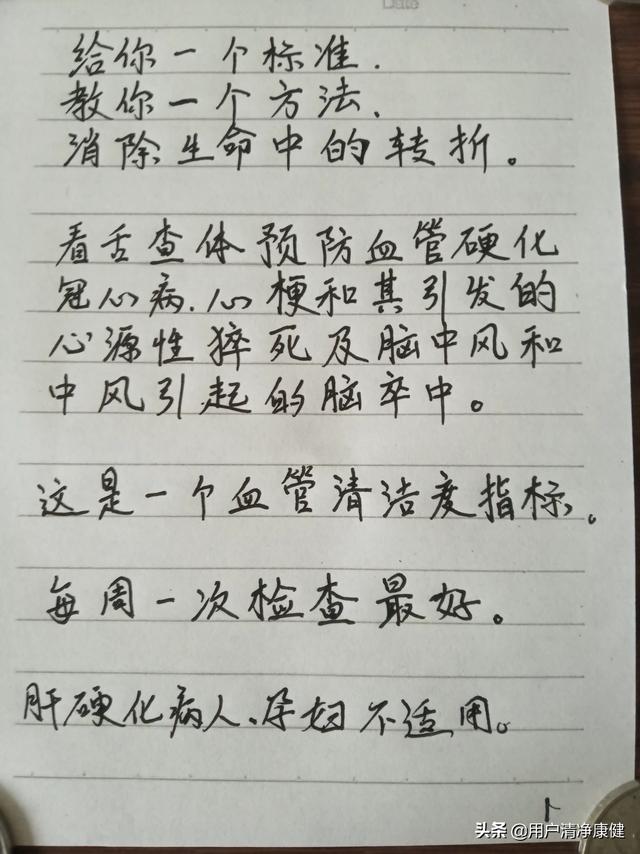 Date
给你一个标准.
教你一个方法.
消除生命中的转折。
看舌查体预防血管硬化
冠心病.心梗和其引发的
心源性猝死及脑中风和
中风引起的脑卒中。
这是一个血管清洁度指标。
每周一次检查最好。
肝硬化病人、孕妇不适用。
1
头条 @用户清净康健